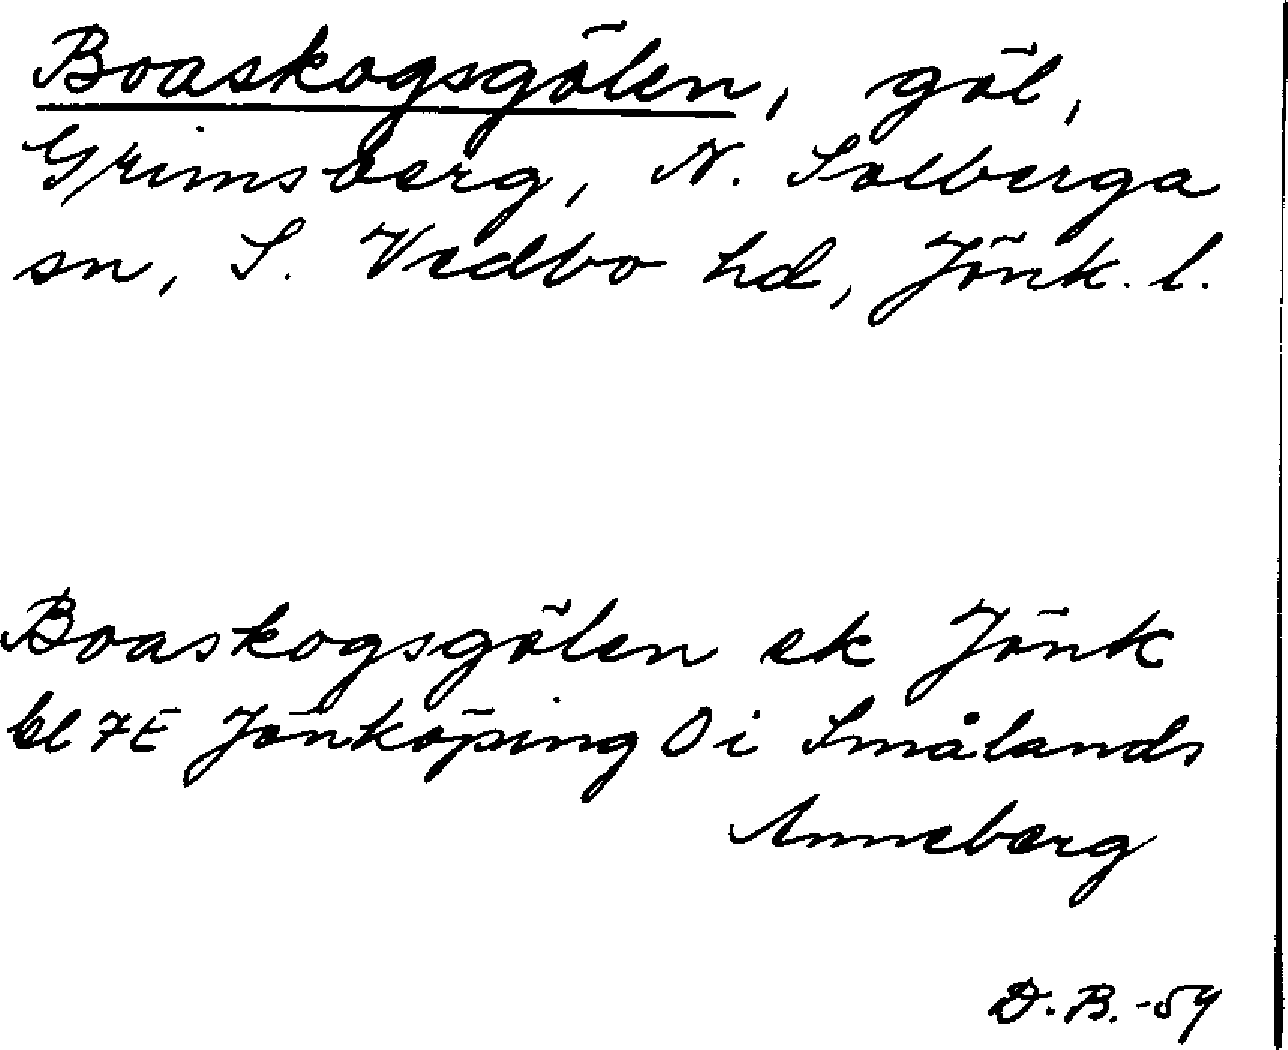 Boaskogsgölen, göl,
Grimsberg, N. Solberga
sn, S. Vedbo hd, Jönk. l.
Boaskogsgölen ek Jönk
bl 7E Jönköping O i Smålands
Anneberg
D. B. -59